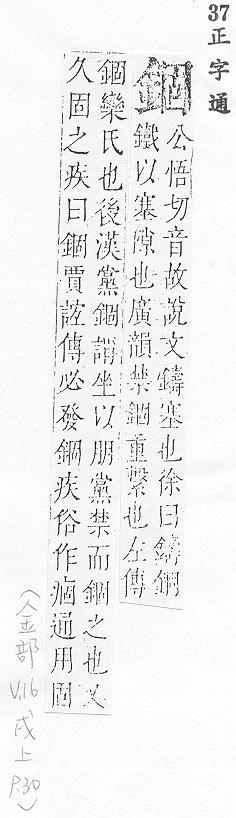 37正字通
錮
公悟切音故說文鑄塞也徐曰鑄銅
鐵以塞隙也廣韻禁錮重繫也左傳
錮欒氏也後漢黨錮謂坐以朋黨禁而錮之也又
久固之疾曰錮賈誼傳必發錮疾俗作痼通用固
(金部
V.16
戌上
P.30)